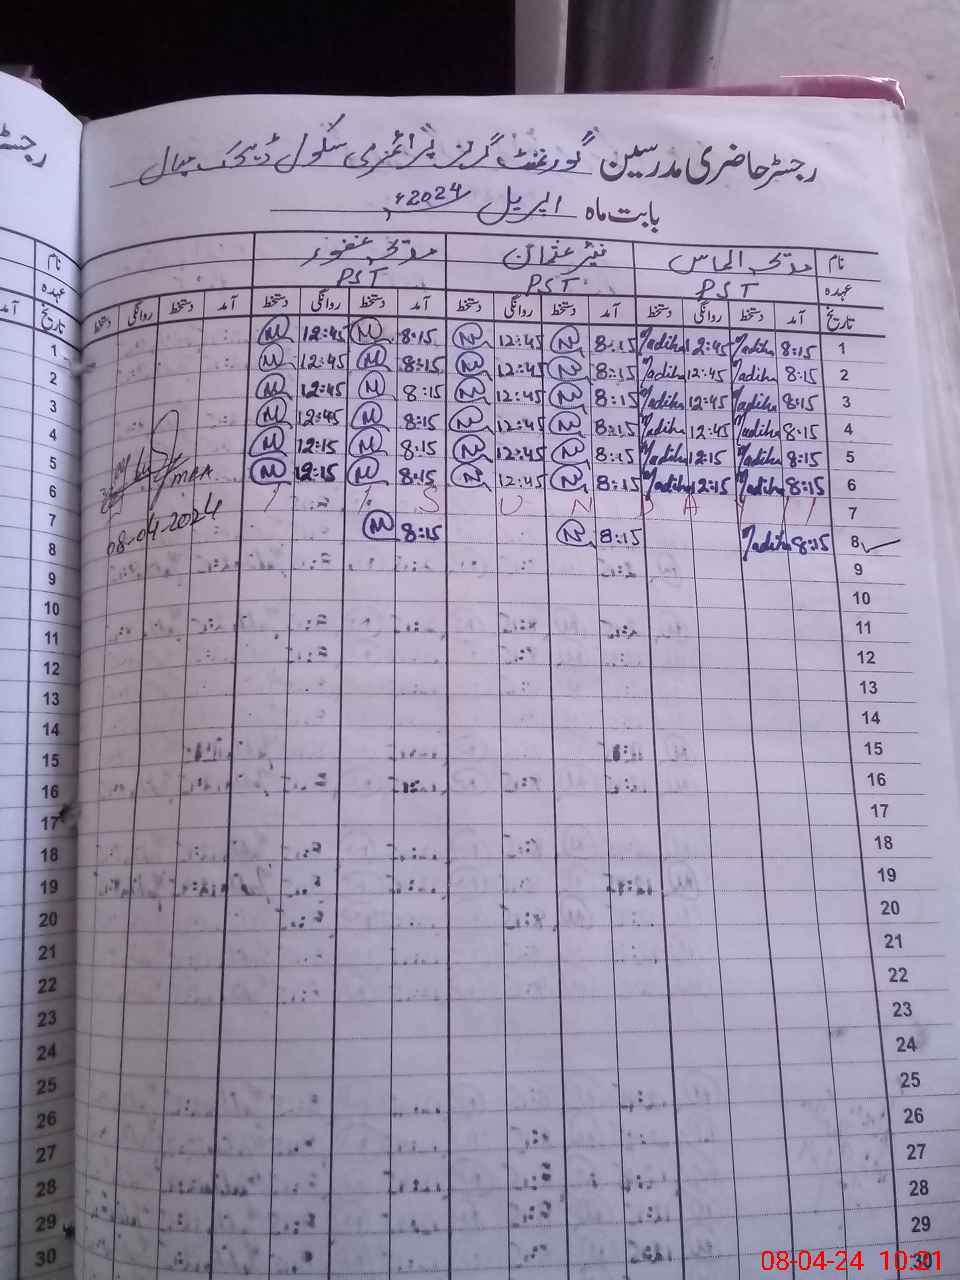 رجسٹر حاضری مدرسین گورنمنٹ گرلز پرائمری سکول
بابت ماہ اپریل 2024ء
نام مدیحہ الماس نیئر عثمان مدیحہ غضنفر
عہدہ PST PST PST
تاریخ آمد دستخط روانگی دستخط آمد دستخط روانگی دستخط آمد دستخط روانگی دستخط آمد دستخط روانگی دستخط
1 8:15 Madiha 12:45 Madiha 8:15 N 12:45 N 8:15 M 12:45 M
2 8:15 Madiha 12:45 Madiha 8:15 N 12:45 N 8:15 M 12:45 M
3 8:15 Madiha 12:45 Madiha 8:15 N 12:45 N 8:15 M 12:45 M
4 8:15 Madiha 12:45 Madiha 8:15 N 12:45 N 8:15 M 12:45 M
5 8:15 Madiha 12:15 Madiha 8:15 N 12:45 N 8:15 M 12:15 M
6 8:15 Madiha 12:15 Madiha 8:15 N 12:45 N 8:15 M 12:15 M
MEA
7 SUNDAY
8 8:15 Madiha 8:15 N 8:15 M
08-04-2024
9
10
11
12
13
14
15
16
17
18
19
20
21
22
23
24
25
26
27
28
29
30
رجسٹر
نام
عہدہ
تاریخ آمد
1
2
3
4
5
6
7
8
9
10
11
12
13
14
15
16
17
18
19
20
21
22
23
24
25
26
27
28
29
30
08-04-24 10:21